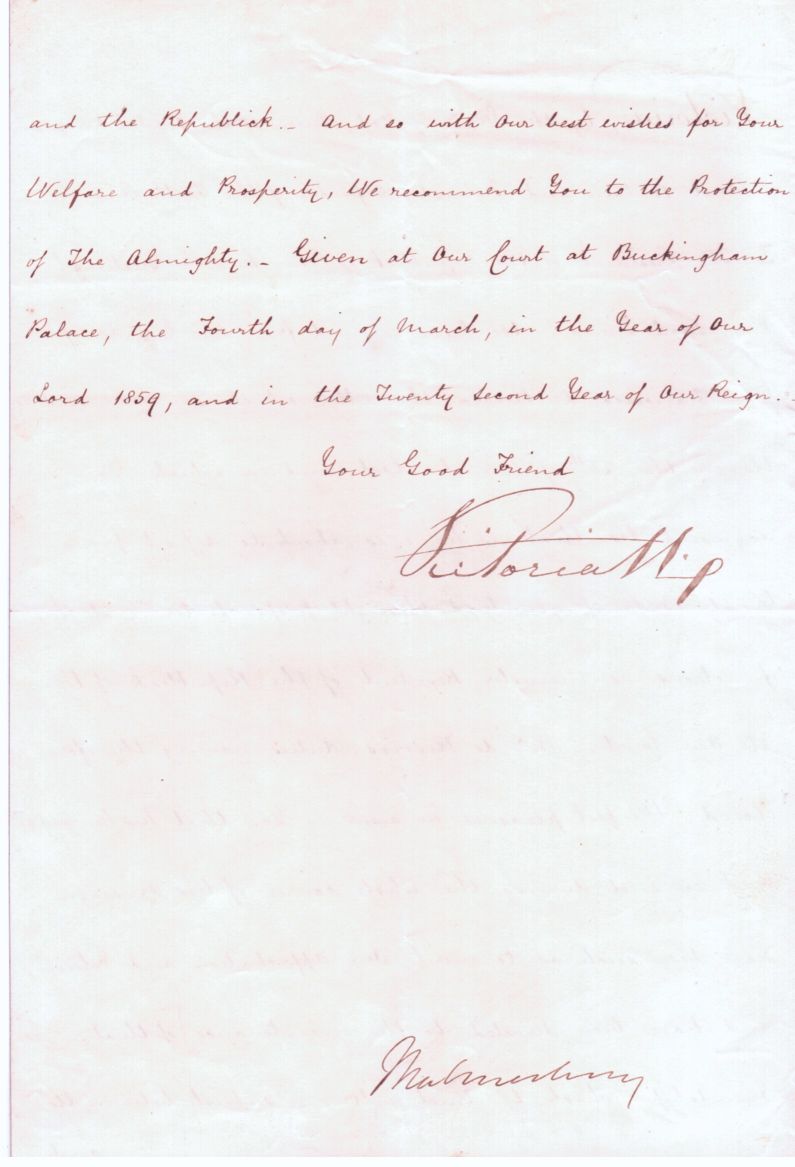 and the Republick._ And so with Our best wishes for Your
Welfare and Prosperity, We recommend You to the Protection
of The Almighty._ Given at Our Court at Buckingham
Palace, the Fourth day of March, in the Year of Our
Lord 1859, and in the Twenty Second Year of Our Reign._
Your Good Friend
Victoria R
Malmesbury